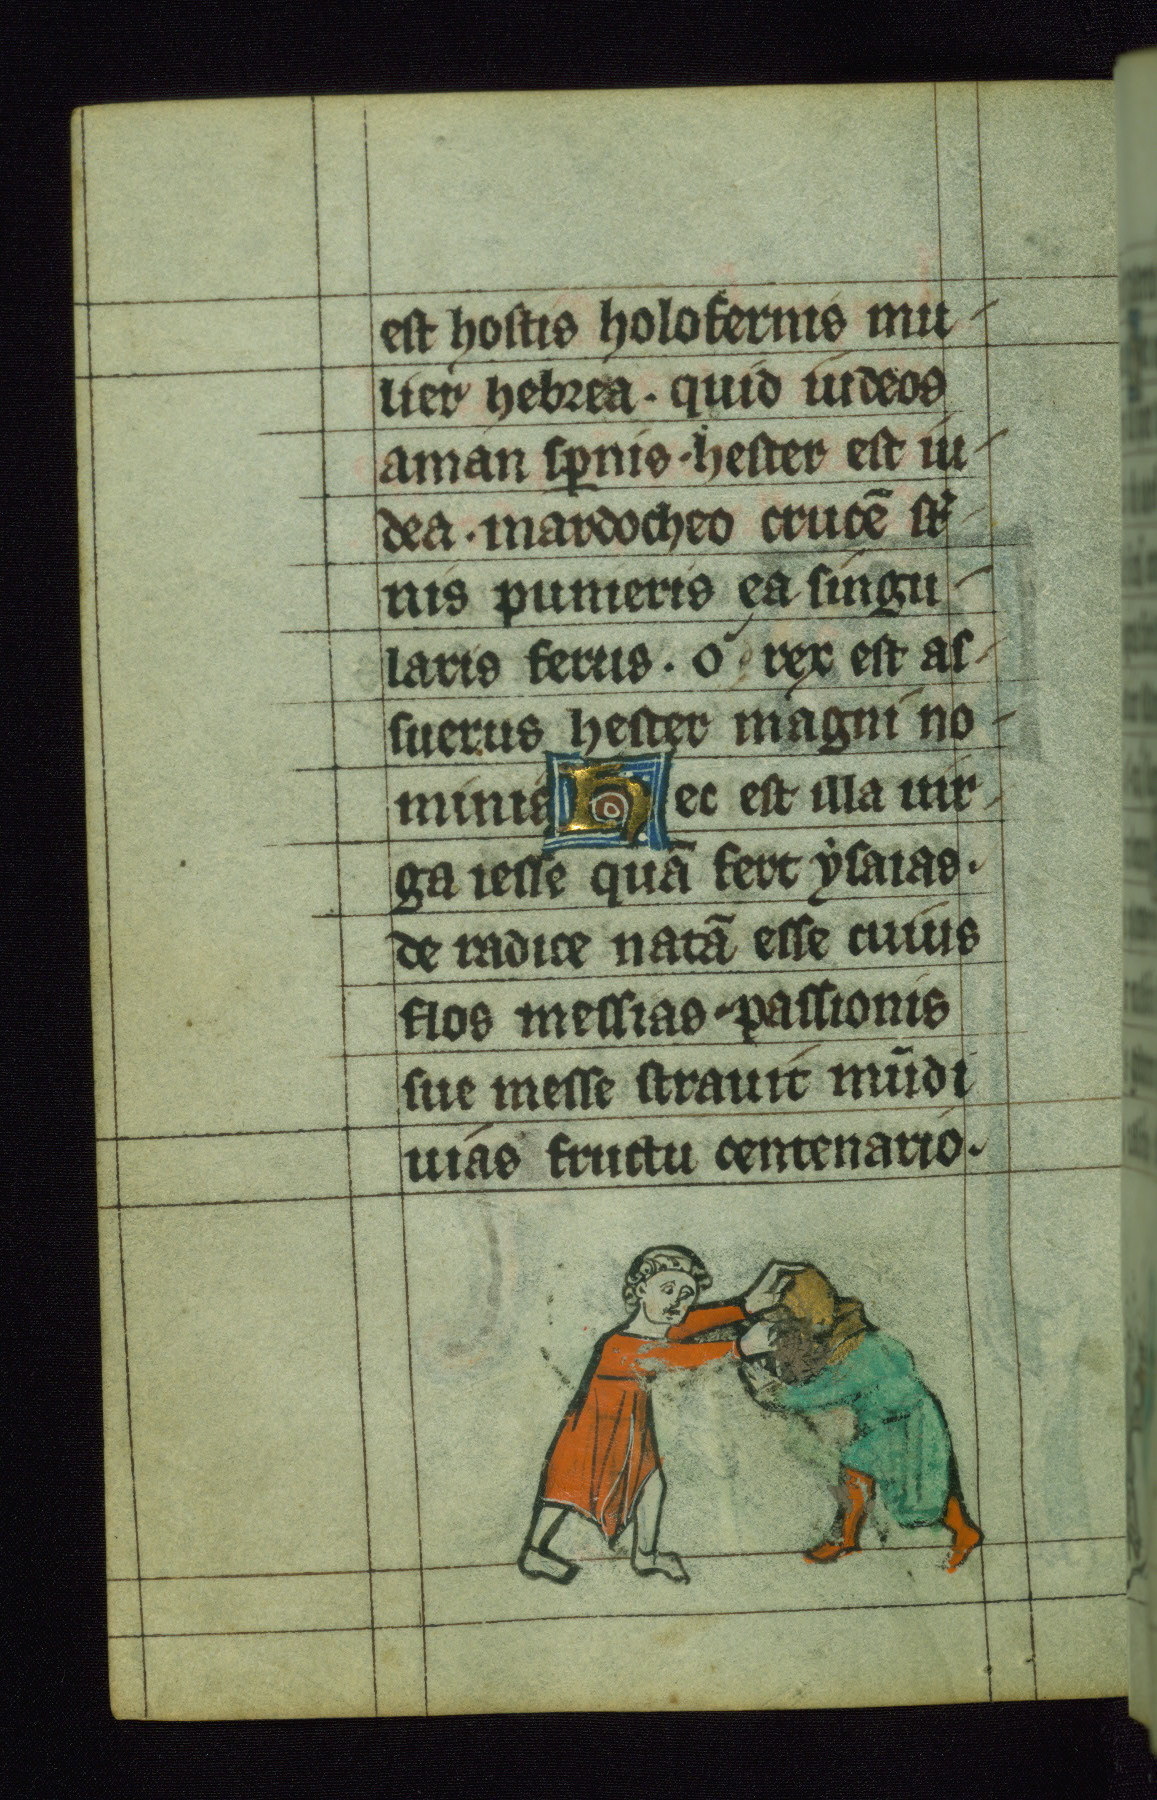 est hostis holofernis mu
lier hebrea. quid iudeos
aman spnis. hester est iu
dea. mardocheo crucē
nis punieris ea singu
laris ferus. o rex est as
suerus hester magni no
minis Hec est illa uir
ga iesse quā fert ysaias.
de radice natā esse cuius
flos messias. passionis
sue messe strauit mūdi
uias fructu centenario.